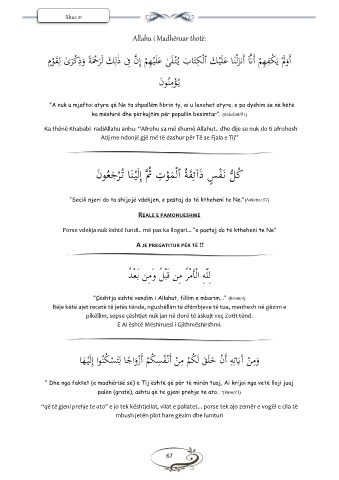 Xhuz 21
Allahu i Madhëruar thotë:
أَوَلَمْ يَكْفِهِمْ أَنَّا أَنزَلْنَا عَلَيْكَ الْكِتَابَ يُتْلَىٰ عَلَيْهِمْ إِنَّ فِي ذَٰلِكَ لَرَحْمَةً وَذِكْرَىٰ لِقَوْمٍ
يُؤْمِنُونَ
"A nuk u mjaftoi atyre që Ne ta shpallëm librin ty, ai u lexohet atyre, e pa dyshim se në këtë
ka mëshirë dhe përkujtim për popullin besimtar".
Ka thënë Khababi-radiAllahu anhu-"Afrohu sa më shumë Allahut.. dhe dije se nuk do ti afrohesh
Atij me ndonjë gjë më të dashur për Të se Fjala e Tij"
كُلُّ نَفْسٍ ذَائِقَةُ الْمَوْتِ ثُمَّ إِلَيْنَا تُرْجَعُونَ
"Secili njeri do ta shijojë vdekjen, e pastaj do të ktheheni te Ne."
REALE E PAMOHUESHME
Porse vdekja nuk është fundi.. më pas ka llogari... "e pastaj do të ktheheni te Ne"
A JE PREGATITUR PËR TË !!
لِلَّهِ الْأَمْرُ مِن قَبْلُ وَمِن بَعْدُ
"Çështja është vendim i Allahut, fillim e mbarim..."
Bëje këtë ajet recetë të jetës tënde, ngushëllim të dhimbjeve të tua, merrhesh në gëzim e
pikëllim, sepse çështjet nuk jan në dorë të askujt veç Zotit tënd.
E Ai është Mëshiruesi i Gjithmëshirshmi.
وَمِنْ آيَاتِهِ أَنْ خَلَقَ لَكُم مِّنْ أَنفُسِكُمْ أَزْوَاجًا لِّتَسْكُنُوا إِلَيْهَا
" Dhe nga faktet (e madhërisë së) e Tij është që për të mirën tuaj, Ai krijoi nga vetë lloji juaj
palën (gratë), ashtu që të gjeni prehje te ato.
"që të gjeni prehje te ato" e jo tek kështjellat, vilat e pallatet... porse tek ajo zemër e vogël e cila të
mbush jetën plot hare gëzim dhe lumturi
67